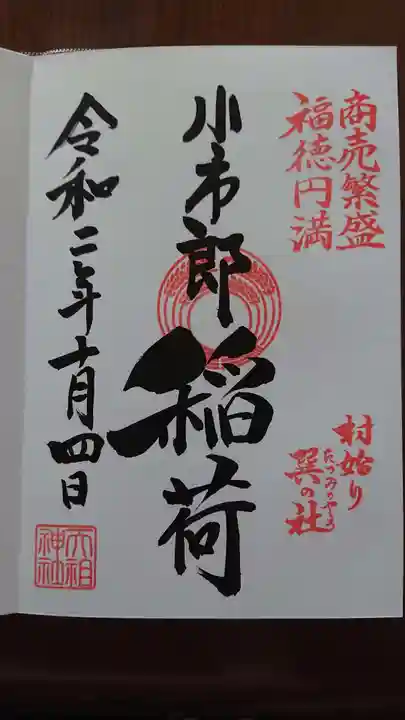 商売繁盛
福徳円満
村始り
巽の社
たつみのやしろ
小市郎稲荷
令和二年十月四日
六祖
神社